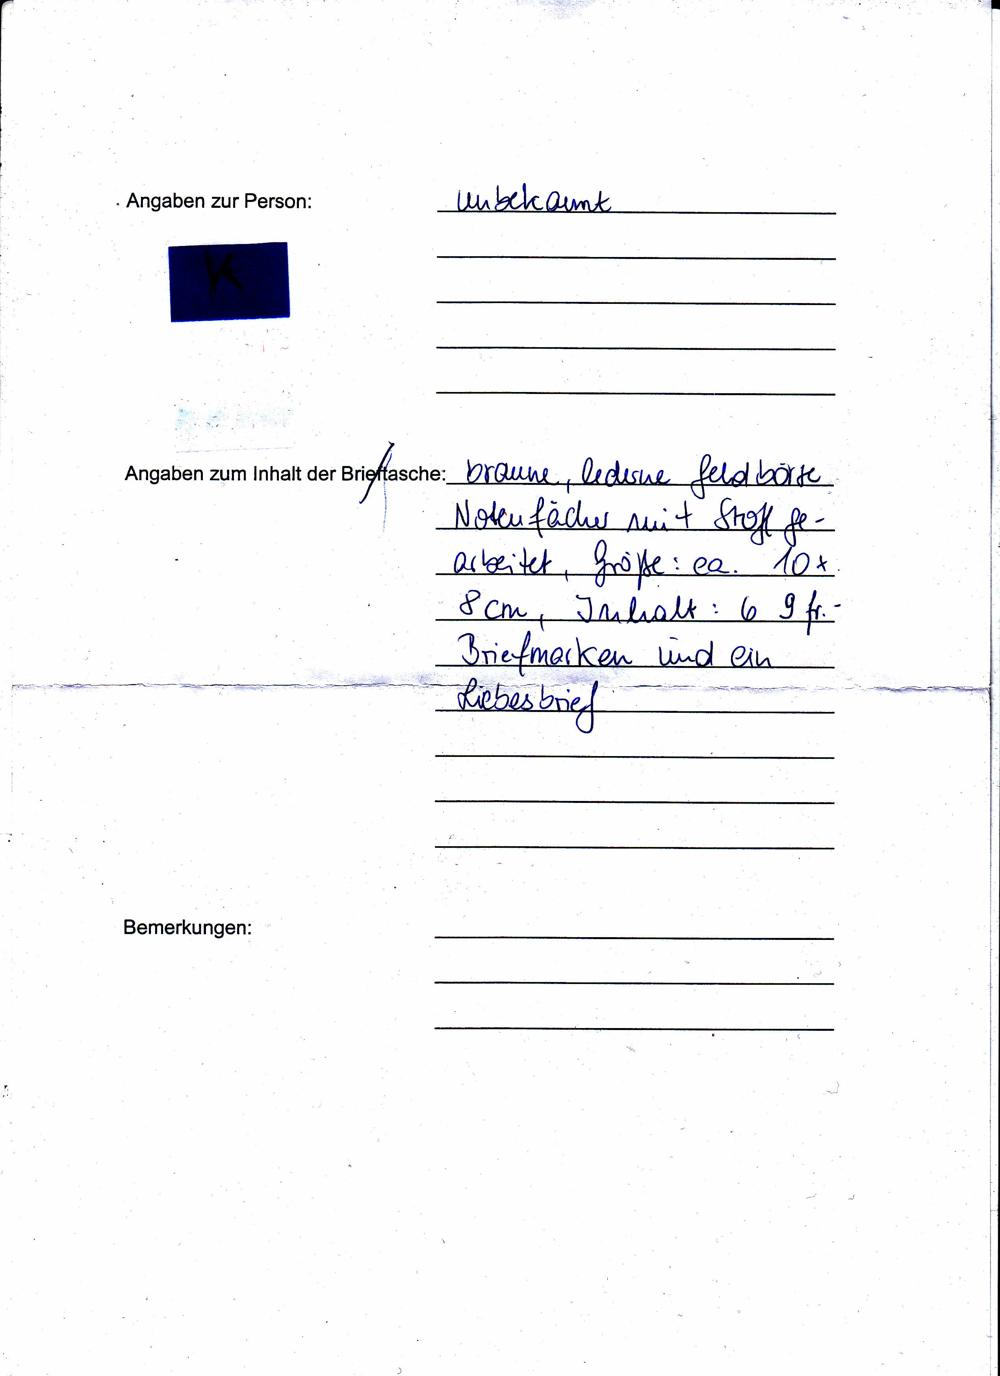 Angaben zur Person: unbekannt
K
Angaben zum Inhalt der Brieftasche: braune, lederne Geldbörse
Notenfächer mit Stoff ge-
arbeitet, Größe: ca. 10x
8cm, Inhalt: 6 9 fr.-
Briefmarken und ein
Liebesbrief
Bemerkungen: